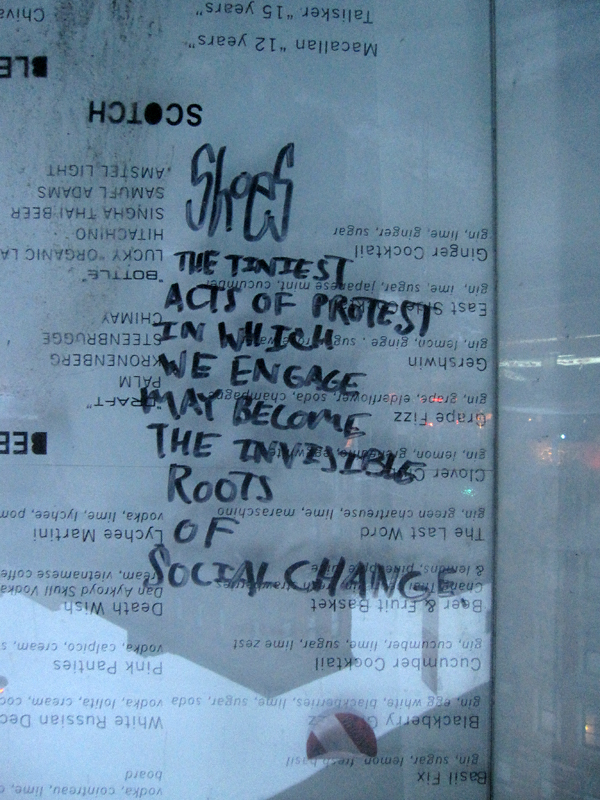 Shoes
THE TINIEST
ACTS OF PROTEST
IN WHICH
WE ENGAGE
MAY BECOME
THE INVISIBLE
ROOTS
OF
SOCIAL CHANGE.
Basil Fix
gin, sugar, lemon, fresh basil
Blackberry
gin, egg white, blackberries, lime, sugar, soda
Cucumber Cocktail
gin, cucumber, lime, sugar, lime zest
Beer & Fruit Basket
The Last Word
gin, green chartreuse, lime, maraschino
Clover
gin, lemon, egg white
Grape Fizz
gin, grape, elderflower, soda, champagne
Gershwin
gin, lemon, ginge, sugar
East Side
gin, lime, sugar, japanese mint, cucumber
Ginger Cocktail
gin, lime, ginger, sugar
SCOTCH
Macallan "12 years"
Talisker "15 years"
vodka, cointreau, lime,
board
White Russian Dec
vodka, lolita, cream, coc
Pink Panties
vodka, calpico, cream, s
Death Wish
Dan Aykroyd Skull Vodka
cream, vietnamese coffe
Lychee Martini
vodka, lime, lychee, pom
BEE
"DRAFT"
PALM
KRONENBERG
STEENBRUGGE
CHIMAY
"BOTTLE"
LUCKY "ORGANIC LA
HITACHINO
SINGHA THAI BEER
SAMUEL ADAMS
AMSTEL LIGHT
BLE
Chiva